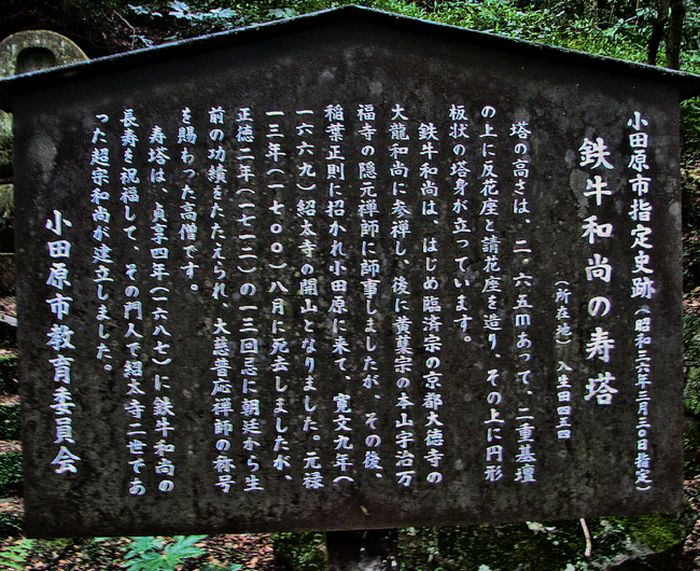 小田原市指定史跡(昭和三六年三月三〇日指定)
鉄牛和尚の寿塔
(所在地) 入生田四五四
塔の高さは、二.六五mあって、二重基壇
の上に反花座と請花座を造り、その上に円形
板状の塔身が立っています。
鉄牛和尚は、はじめ臨済宗の京都大徳寺の
大龍和尚に参禅し、後に黄葉宗の本山宇治万
福寺の隠元禅師に師事しましたが、その後、
稲葉正則に招かれ小田原に来て、寛文九年(
一六六九)紹太寺の開山となりました。元禄
一三年(一七〇〇)八月に死去しましたが、
正徳二年(一七一二)の一三回忌に朝廷から生
前の功績をたたえられ、大慈普応禅師の称号
を賜わった高僧です。
寿塔は、貞享四年(一六八七)に鉄牛和尚の
長寿を祝福して、その門人で紹太寺二世であ
った超宗和尚が建立しました。
小田原市教育委員会